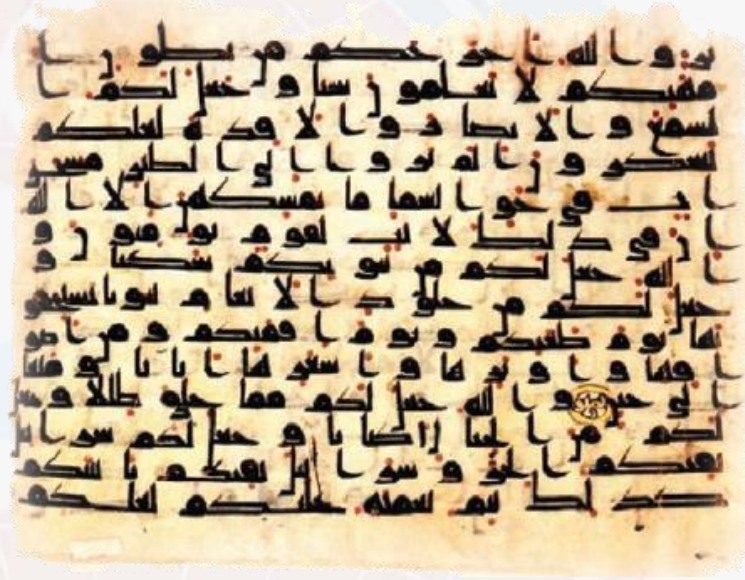 ير و الله اخرجكم من بطون ا
مهتكم لا تعلمون شيا و جعل لكم ا
لسمع و الابصار و الافدة لعلكم
تشكرون الم يروا الى الطير مسخر
ات في جو السما ما يمسكهن الا الله
ان في ذلك لايت لقوم يومنون و
الله جعل لكم من بيوتكم سكنا و
جعل لكم من جلود الانعام بيوتا تستخفو
نها يوم ظعنكم و يوم اقامتكم و من اصو
افها و اوبارها و اشعارها اثاثا و متعا
الى حين و الله جعل لكم مما خلق ظللا و جعل
لكم من الجبال اكنانا و جعل لكم سرابيل
تقيكم الحر و سرابيل تقيكم باسكم
كذلك يتم نعمته عليكم لعلكم